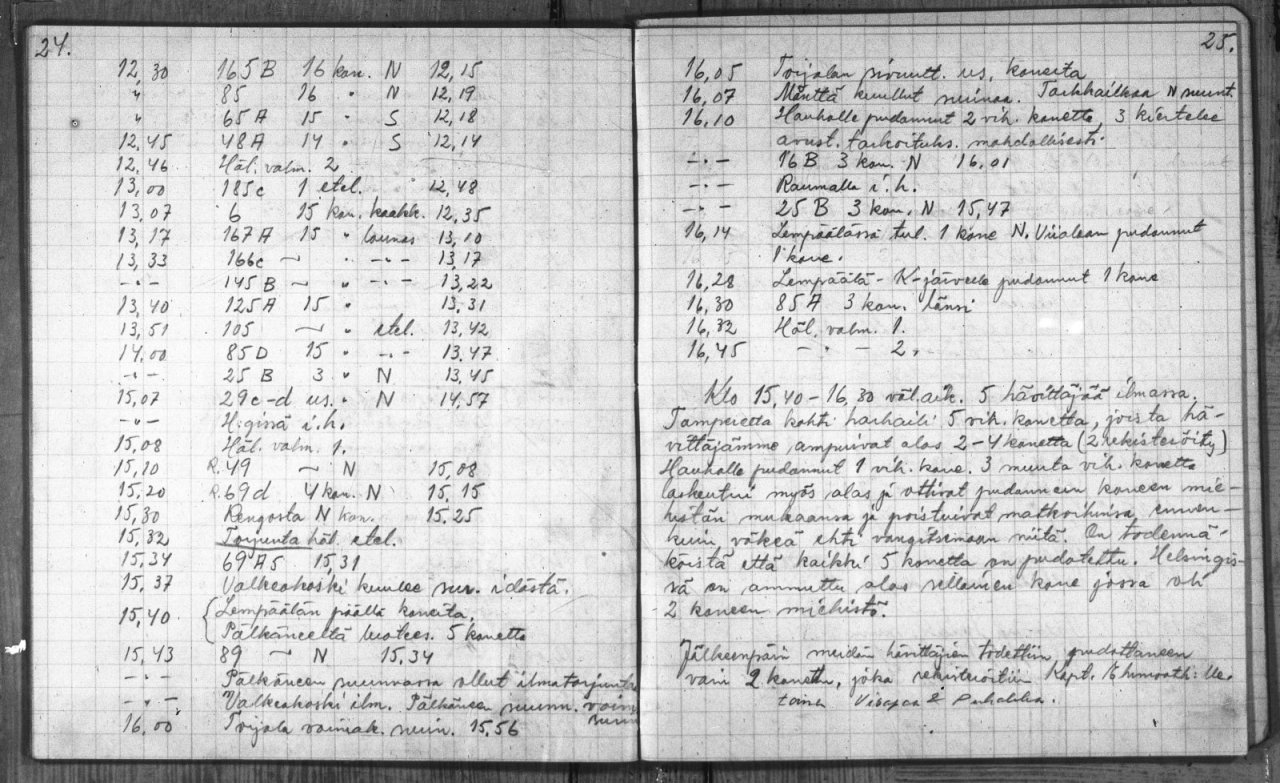 24.
12,30 165 B 16 kon. N 12,15
" 85 16 " N 12,19
" 65 A 15 " S 12,18
12,45 48 A 14 " S 12,14
12,46 Häl. valm. 2
13,00 185c 1 etel. 12,48
13,07 6 15 kon. kaakk. 12,35
13,17 167 A 15 " lounas 13,10
13,33 166c ~ " -"- 13,17
-"- 145 B ~ " -"- 13,22
13,40 125 A 15 " 13,31
13,51 105 ~ " etel. 13,42
14,00 85 D 15 " -"- 13,47
-"- 25 B 3 " N 13,45
15,07 29 c-d us. " N 14,57
-"- H:gissä i.h.
15,08 Häl. valm. 1.
15,10 R. 49 ~ N 15,08
15,20 R. 69 d 4 kon. N 15,15
15,30 Rengosta N kon. 15,25
15,32 Torjunta häl. etel.
15,34 69 A5 15,31
15,37 Valkeakoski kuulee sur. idästä.
15,40 { Lempäälän päällä koneita.
Pälkäneeltä luotees. 5 konetta
15,43 89 ~ N 15,34
-"- Pälkäneen suunnassa ollut ilmatorjunta
-"- Valkeakoski ilm. Pälkäneen suunn. voim
surin
16,00 Toijala voimak. surin. 15,56
25.
16,05 Toijalan sivuutt. us. koneita
16,07 Mänttä kuullut surinaa. Tarkkailkaa N suunt.
16,10 Hauholle pudonnut 2 vih. konetta, 3 kiertelee
avust. tarkoituks. mahdollisesti.
-"- 16 B 3 kon. N 16,01
-"- Raumalla i.h.
-"- 25 B 3 kon. N 15,47
16,14 Lempäälässä tul. 1 kone N. Viialaan pudonnut
1 kone.
16,28 Lempäälä - K-järvelle pudonnut 1 kone
16,30 85 A 3 kon. länsi
16,32 Häl. valm. 1.
16,45 - " - 2.
Klo 15,40-16,30 väl.aik. 5 hävittäjää ilmassa.
Tamperetta kohti harhaili 5 vih. konetta, joista hä-
vittäjämme ampuivat alas 2-4 konetta (2 rekisteröity)
Hauholle pudonnut 1 vih. kone. 3 muuta vih. konetta
laskeutui myös alas ja ottivat pudonneen koneen mie-
histön mukaansa ja poistuivat matkoihinsa ennen-
kuin väkeä ehti vangitsemaan niitä. On todennä-
köistä että kaikki 5 konetta on pudotettu. Helsingis-
sä on ammuttu alas sellainen kone jossa oli
2 koneen miehistö.
Jälkeenpäin meidän hävittäjien todettiin pudottaneen
vain 2 konetta, joka rekisteröitiin Kapt.
Visapaa & Puhakka.